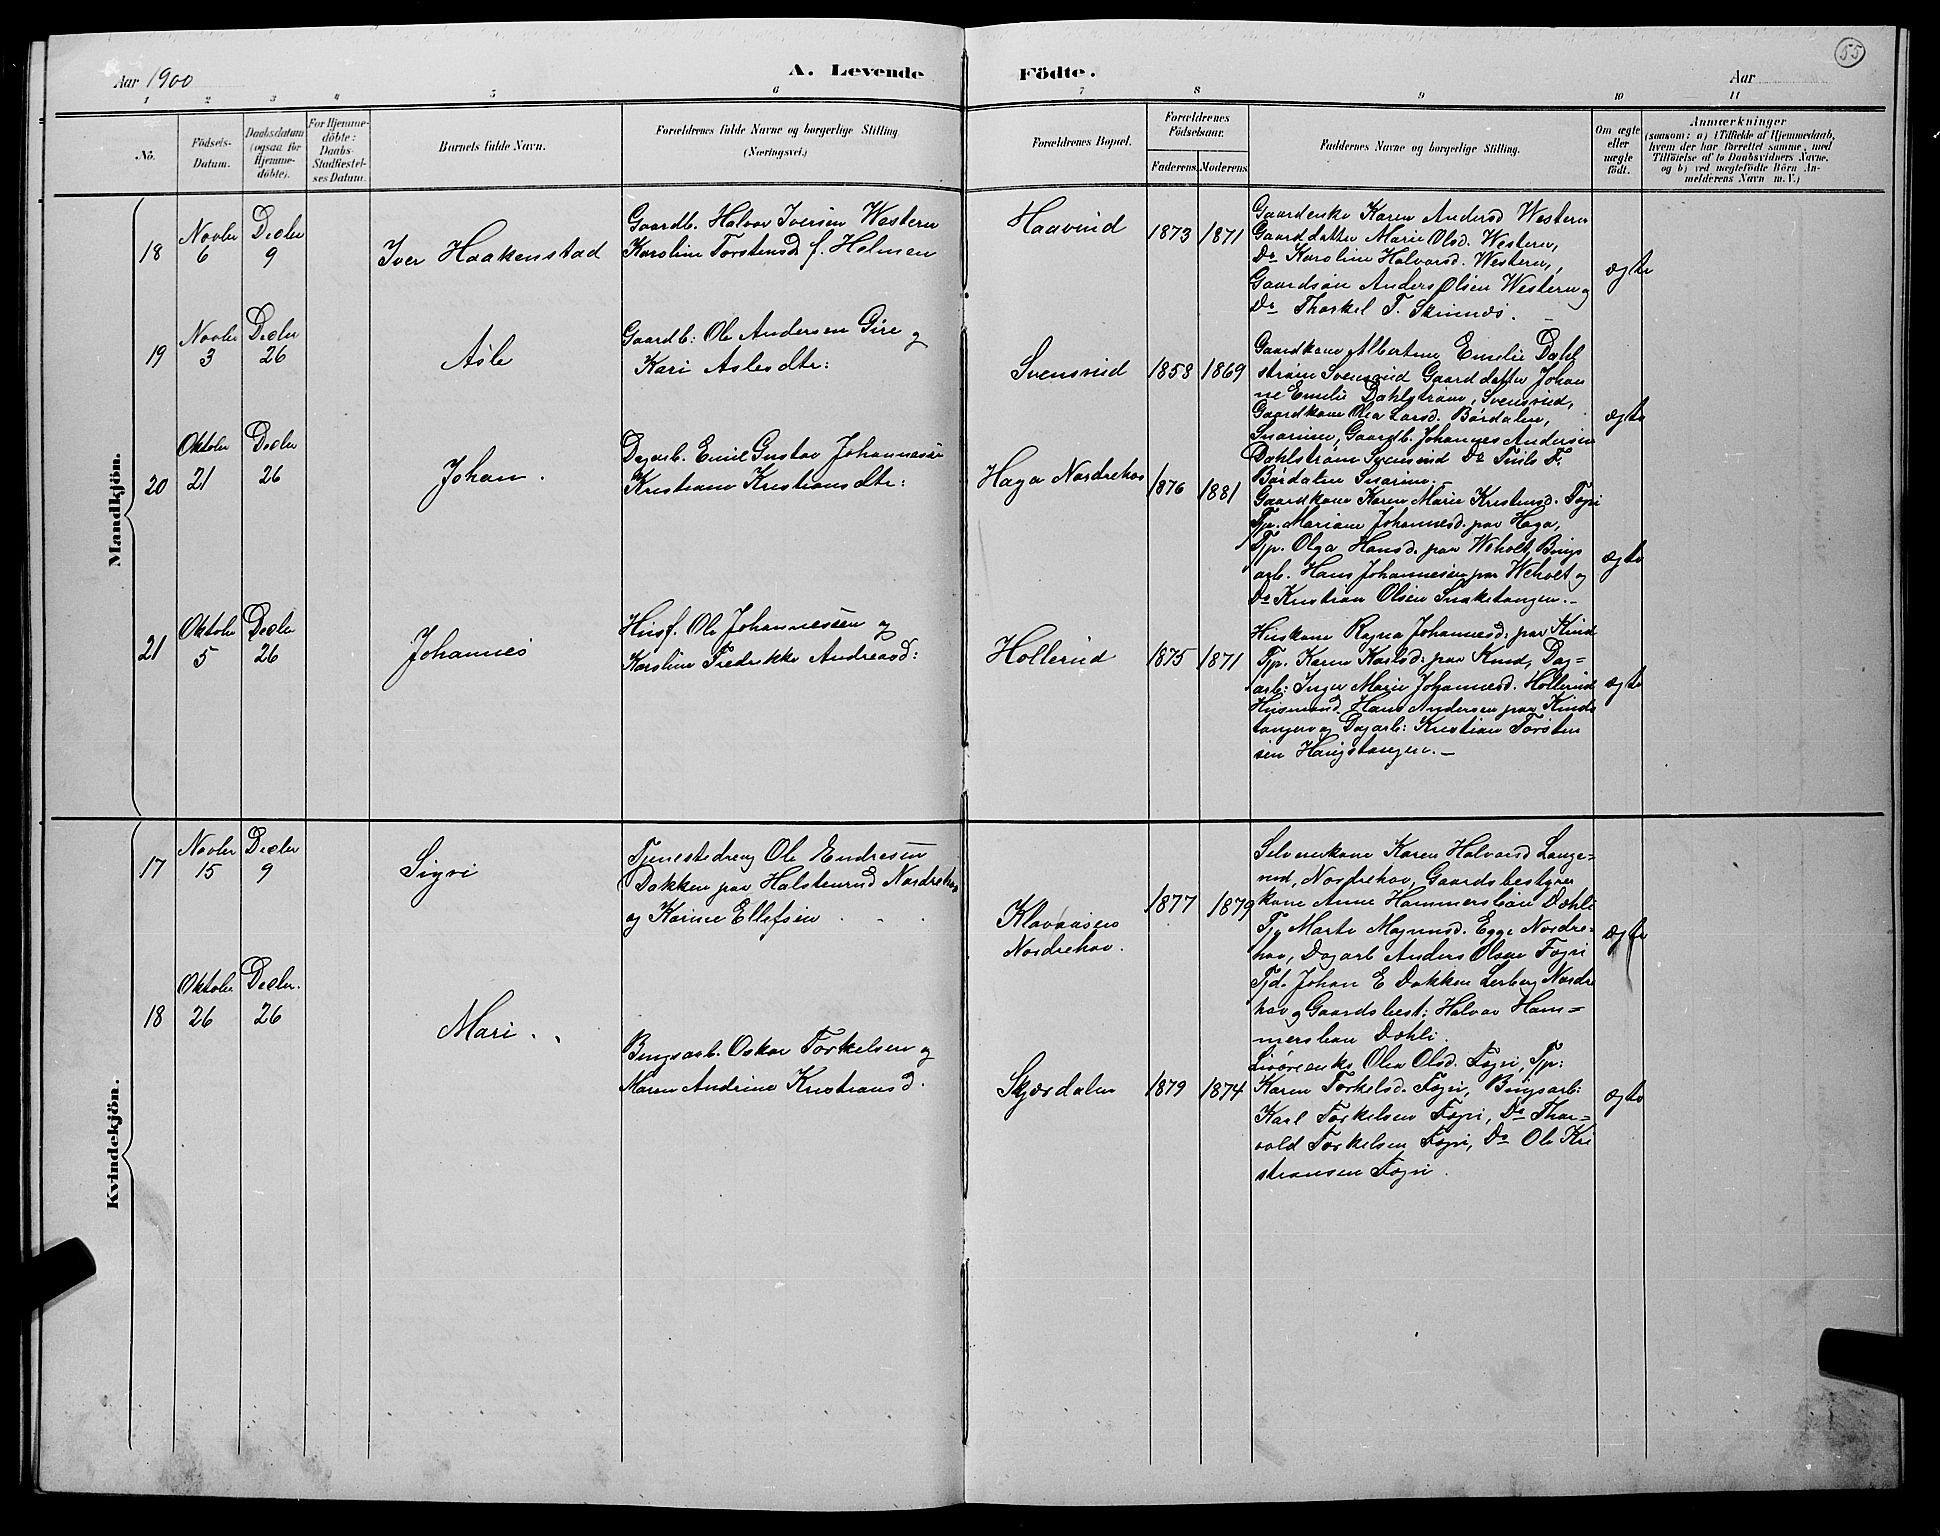 55
Aar 1900
A. Levende Födte.
Aar
1 2 3 4 5 6 7 8 9 10 11
No.
Födsels-
Datum.
Daabsdatum
(ogsaa for
Hjemme-
döbte).
For Hjemme-
döbte:
Daabs-
Stadfæstel-
ses Datum.
Barnets fulde Navn.
Forældrenes fulde Navne og borgerlige Stilling
(Næringsvei.)
Forældrenes Bopæl.
Forældrenes
Födselsaar.
Faderens. Moderens
Faddernes Navne og borgerlige Stilling.
Om ægte
eller
uægte
födt.
Anmærkninger
(saasom: a) i Tilfælde af Hjemmedaab,
hvem der har forrettet samme, med
Tilföielse af to Daabsvidners Navne,
og b) ved uægtefödte Börn An-
melderens Navn m. V.)
Mandkjön.
18
Novbr
6
Decbr
9
Iver Haakenstad
Gaardb. Halvor Iversen Western
Karoline Torstensd f. Holmen
Haavind
1873 1871
Gaardenke Karen Andersd Western
Gaarddatter Marie Olsd. Western,
Do Karoline Halvorsd. Western,
Gaardsøn Anders Olsen Western og
Do Thorkel T. Skinnes.
ægte
19
Novbr
3
Decbr
26
Asle
Gaardb: Ole Andersen Gire og
Kari Aslesdtr:
Svensrud
1858 1869
Gaardkone Albertine Emilie Dahl
strøm Svensrud Gaarddatter Johan
ne Emilie Dahlstrøm, Svensrud,
Gaardkone Olea Larsd. Børdalen,
Snarum, Gaardb. Johannes Andersen
Dahlstrøm Svensrud Do Truls T.
Børdalen Snarum.
ægte
20
Oktober
21
Decbr
26
Johan.
Dagarb. Emil Gustav Johannessen
Kristiane Kristiansdtr:
Haga Nordrehov
1876 1881
Gaardkone Karen Marie Kristensd. Fagri
Tjp. Mariane Johannesd. paa Haga,
Tjp. Olga Hansd. paa Weholt, Brugs
arb. Hans Johannesen paa Weholt og
Do Kristian Olsen Snaketangen.-
ægte
21
Oktober
5
Decbr
26
Johannes
Husf. Ole Johannessen og
Karoline Fredrikke Andreasd:
Hollerud
1875 1871
Huskone Ragna Johannesd: paa Rud
Tjp. Karen Karlsd: paa Rud, Dag=
arb: Inger Marie Johannesd. Hollerud
Husmand Hans Andersen paa Ruds
tangen og Dagarb: Kristian Torsten
sen Haugstangen.-
ægte
Kvindekjön.
17
Novbr
15
Decbr
9
Sigri
Tjenestedreng Ole Endresen
Dokken paa Halstenrud Nordrehov
og Karine Ellefsen
Klovaasen
Nordrehov.
1877 1879
Selveierkone Karen Halvorsd Lange=
rud, Nordrehov, Gaardsbestyrer
kone Anne Hammersbøen Dæhli
Tjp Marte Magnusd. Egge Nordre=
hov, Dagarb Anders Olsen Fagri
Tjd. Johan E Dokken Lerberg Nordre
hov og Gaardsbest: Halvor Ham=
mersbøen Dæhli.
ægte
18
Oktober
26
Decbr.
26
Mari
Brugsarb. Oskar Torkelsen og
Maren Andrine Kristiansd.
Skjærdalen
1879 1874
Livøreenke Olea Olsd. Fagri, Tjp:
Karen Torkelsd. Fagri, Brugsarb:
Karl Torkelsen Fagri, Do Thor=
vald Torkelsen Fagri, Do Ole Kri
stiansen Fagri.
ægte